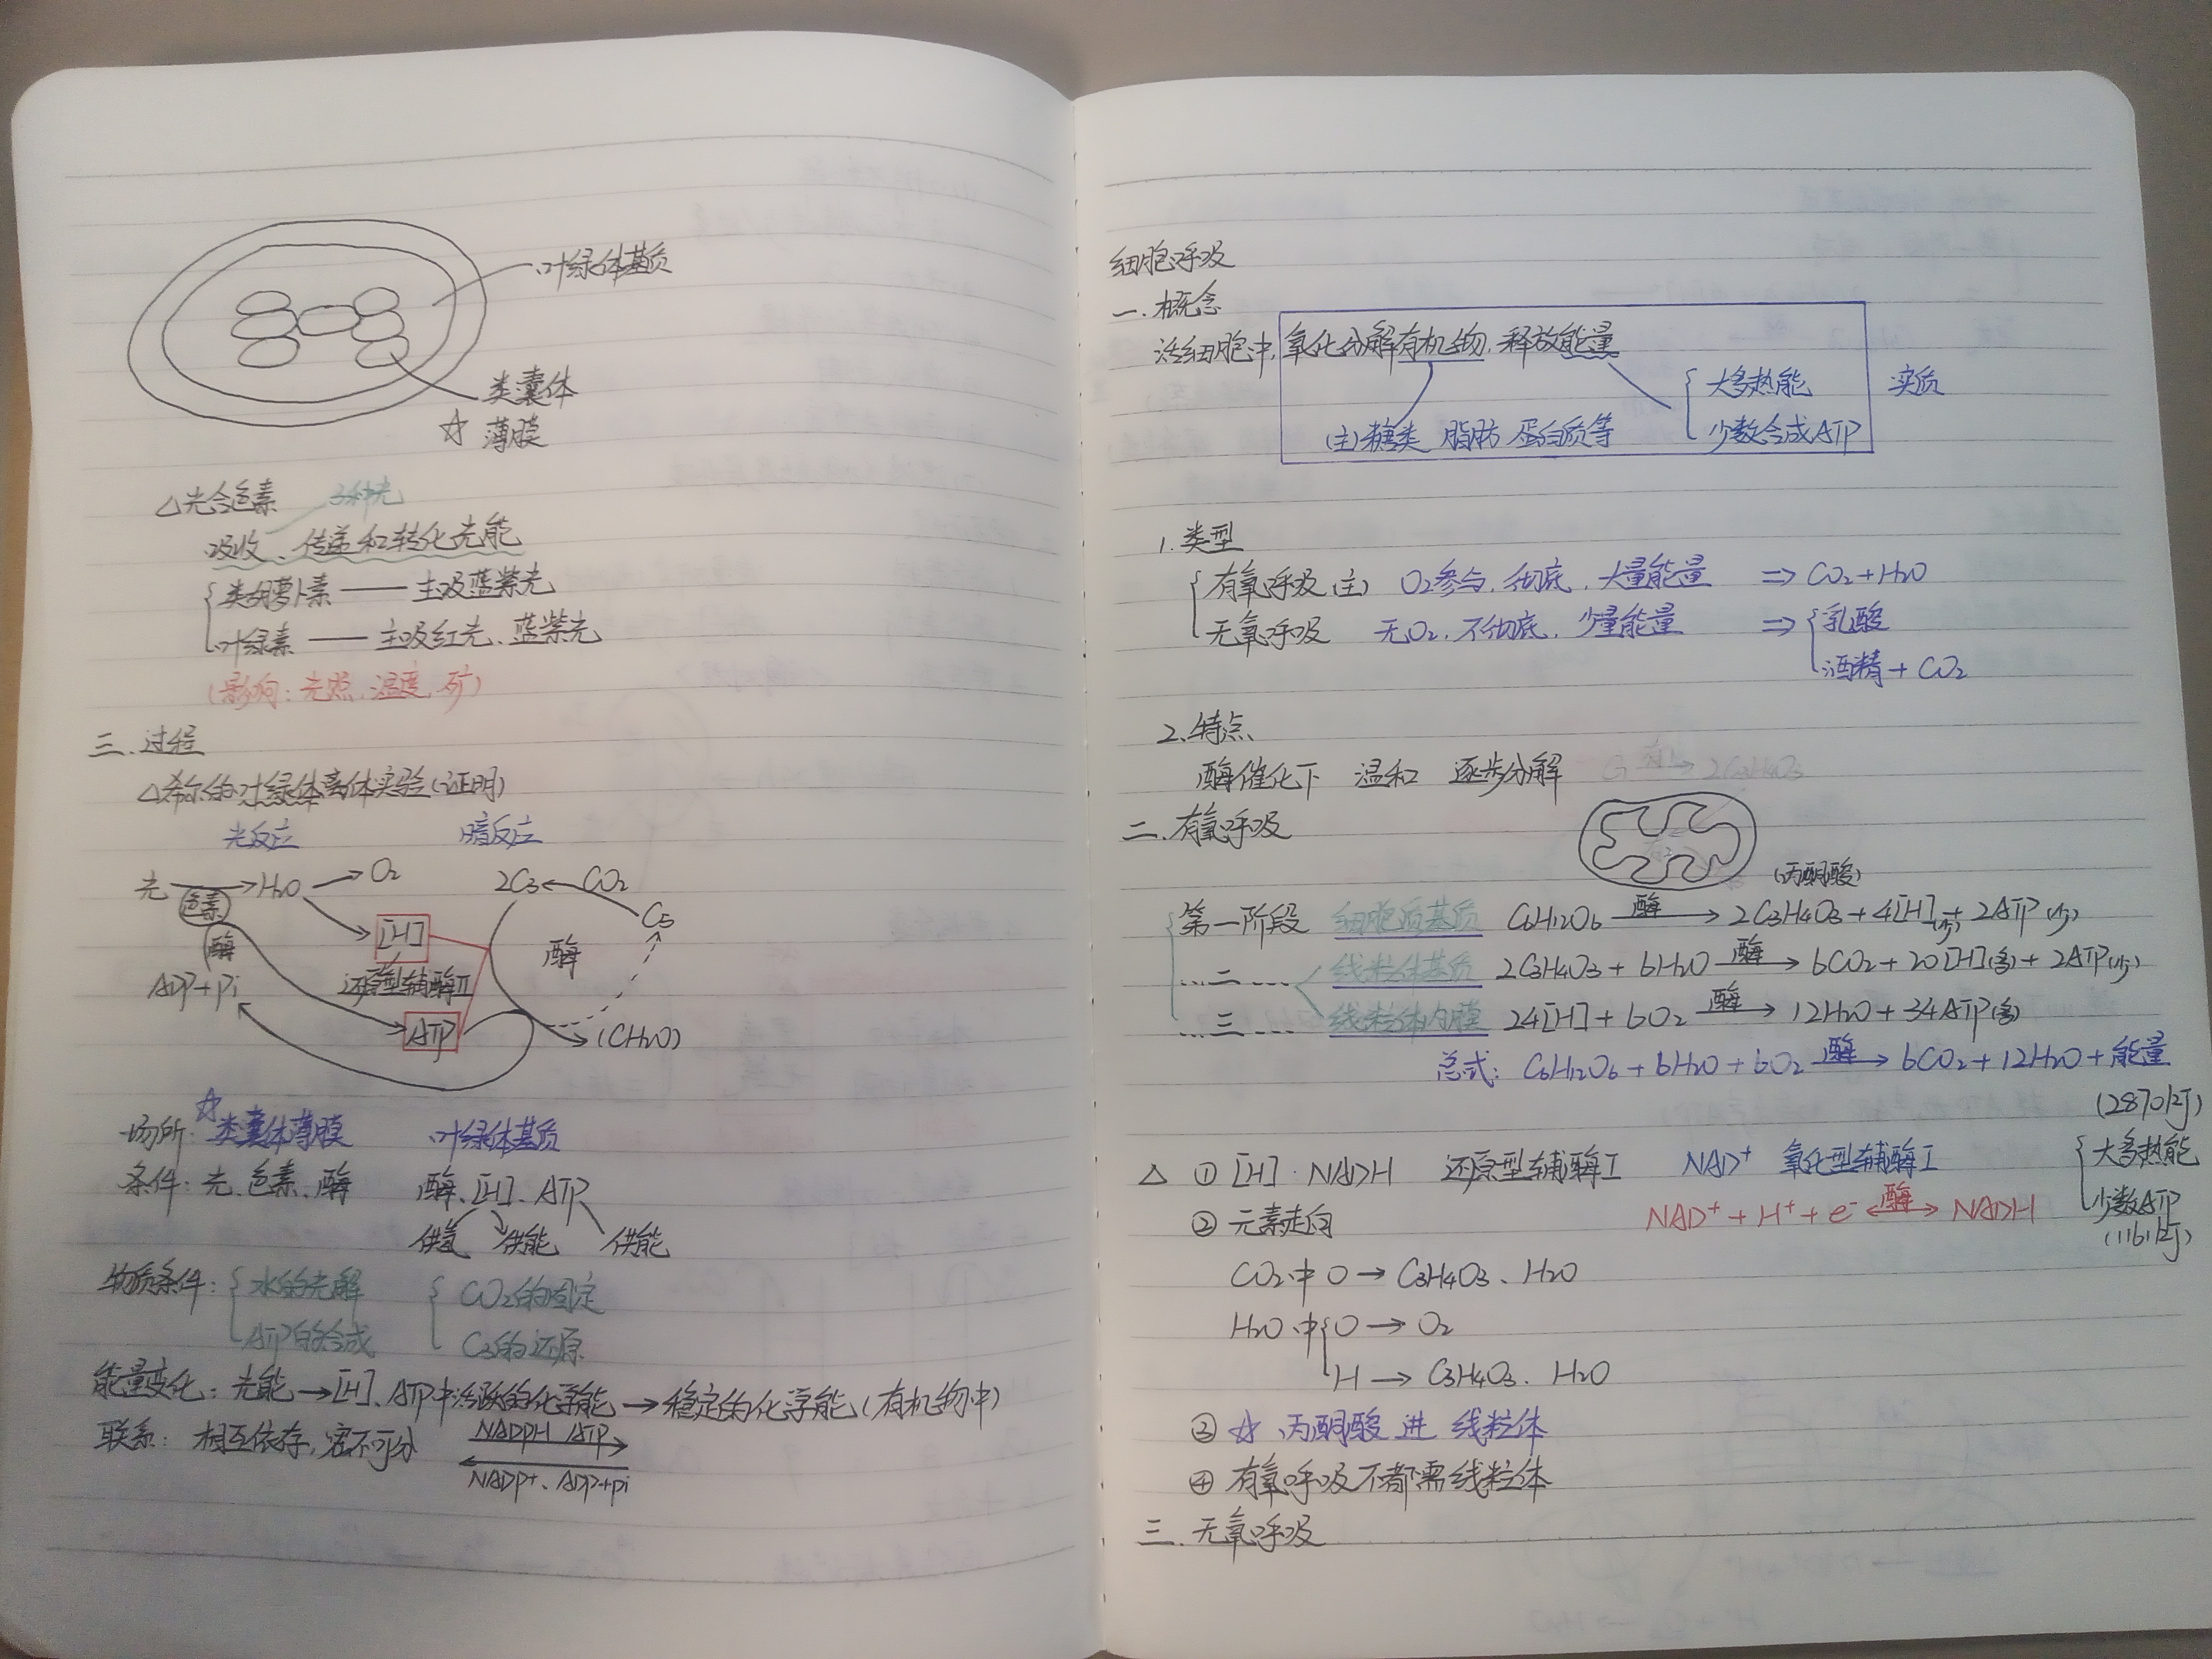 叶绿体基质
类囊体
☆ 薄膜
△光合色素 3种光
吸收、传递和转化光能
类胡萝卜素 —— 主吸蓝紫光
叶绿素 —— 主吸红光、蓝紫光
(影响：光照、温度、矿)
三.过程
△希尔的叶绿体离体实验(证明)
光反应 暗反应
光 → H2O → O2 2C3 ← CO2
色素 C5
酶 [H] 酶
ADP+Pi 还原型辅酶Ⅱ
ATP (CH2O)
场所：☆类囊体薄膜 叶绿体基质
条件：光、色素、酶 酶、[H]、ATP
供氢 供能 供能
物质条件：水的光解 CO2的固定
ATP的合成 C3的还原
能量变化：光能→[H]、ATP中活跃的化学能→稳定的化学能(有机物中)
联系：相互依存，密不可分 NADPH ATP
NADP+、ADP+Pi
细胞呼吸
一.概念
活细胞中，氧化分解有机物，释放能量
大多热能 实质
(主)糖类 脂肪 蛋白质等 少数合成ATP
1.类型
有氧呼吸(主) O2参与，彻底，大量能量 ⇒ CO2+H2O
无氧呼吸 无O2，不彻底，少量能量 ⇒ 乳酸
酒精+CO2
2.特点
酶催化下 温和 逐步分解
二.有氧呼吸
(丙酮酸)
第一阶段 细胞质基质 C6H12O6 酶→ 2C3H4O3+4[H](少)+2ATP(少)
…二… 线粒体基质 2C3H4O3+6H2O 酶→ 6CO2+20[H](多)+2ATP(少)
…三… 线粒体内膜 24[H]+6O2 酶→ 12H2O+34ATP(多)
总式：C6H12O6+6H2O+6O2 酶→ 6CO2+12H2O+能量
(2870kJ)
△ ① [H]·NADH 还原型辅酶Ⅰ NAD+ 氧化型辅酶Ⅰ 大多热能
② 元素走向 NAD+ + H+ + e- 酶⇌ NADH 少数ATP
(1161kJ)
CO2中O → C3H4O3、H2O
H2O中 O → O2
H → C3H4O3、H2O
③ ☆ 丙酮酸 进 线粒体
④ 有氧呼吸不都需线粒体
三.无氧呼吸